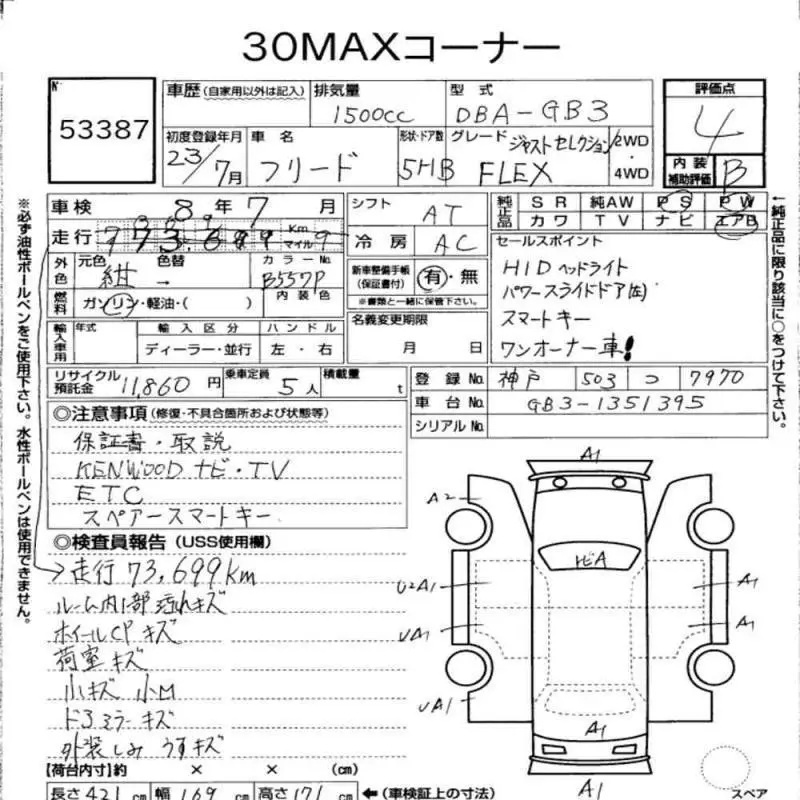 30MAXコーナー
№ 53387
車歴 (自家用以外は記入) 排気量 1500cc 型式 DBA-GB3 評価点 4
初度登録年月 23/7月 車名 フリード 形状・ドア数 5HB グレード ジャストセレクション FLEX 2WD 4WD 内装補助評価 B
車検 8年7月 シフト AT 純正品 SR 純AW PS PW
カワ TV ナビ エアB
走行 Km マイル 冷房 AC セールスポイント
外色 元色 紺 色替 → カラーNo. B557P 新車整備手帳 (保証書付) 有・無 ※書類と一緒に保管下さい。
HIDヘッドライト
パワースライドドア(左)
スマートキー
ワンオーナー車!
燃料 ガソリン・軽油・( ) 内装色
輸入車用 年式 輸入区分 ディーラー・並行 ハンドル 左・右 名義変更期限 月 日
リサイクル預託金 11,860円 乗車定員 5人 積載量 t 登録No. 神戸 503 つ 7970
車台No. GB3-1351395
シリアルNo.
◎注意事項 (修復・不具合箇所および状態等)
保証書・取説
KENWOODナビ・TV
ETC
スペアースマートキー
◎検査員報告 (USS使用欄)
走行 73,699km
ルーム内部 汚れキズ
ホイールCP キズ
荷室キズ
小キズ 小M
ドアミラーキズ
外装しみ うすキズ
【荷台内寸】約 × × (cm)
長さ421cm 幅169cm 高さ171cm ←(車検証上の寸法)
A1
A2
トビA
U2A1
A1
UA1
A1
UA1
A1
A1
スペア
※必ず油性ボールペンをご使用下さい。水性ボールペンは使用できません。
←純正品に限り該当に○をつけて下さい。